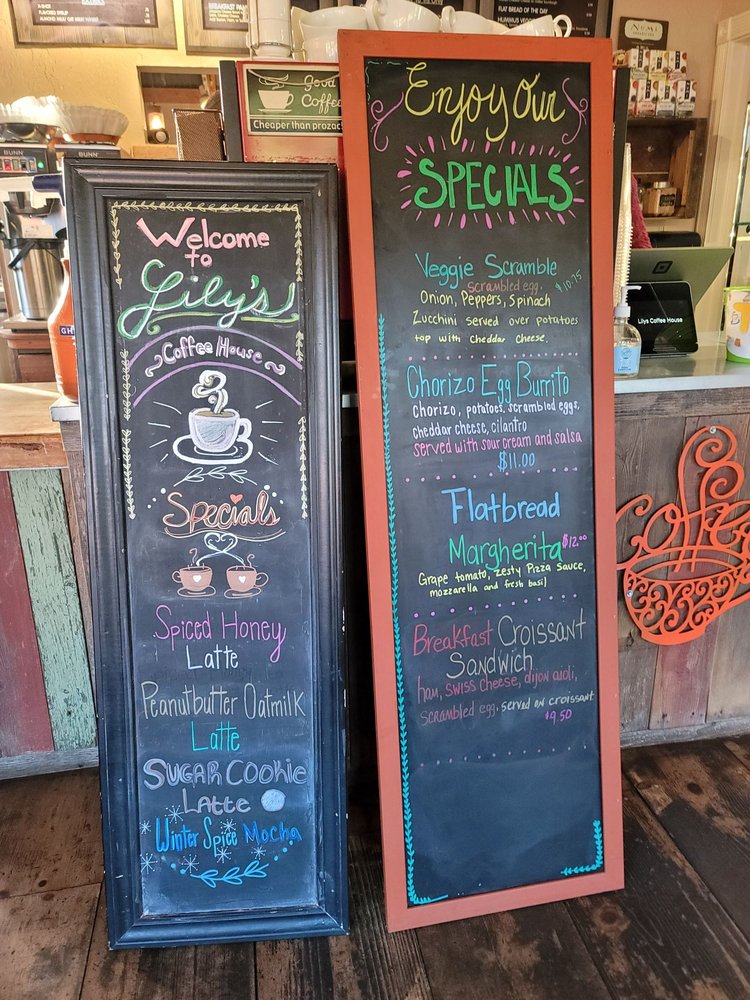 A-SHOT
FLAVORED SYRUP
ALMOND MILK OAT MILK
BREAKFAST PAN
FLAT BREAD OF THE DAY
HUMMUS VEGGIE
NUMI
Good
Coffee
Cheaper than prozac
BUNN
BUNN
Welcome
to
Lily's
Coffee House
Specials
Spiced Honey
Latte
Peanutbutter Oatmilk
Latte
Sugar Cookie
Latte
Winter Spice Mocha
Enjoy Our
SPECIALS
Veggie Scramble
scrambled egg, $10.75
Onion, Peppers, Spinach
Zucchini served over potatoes
top with cheddar cheese
Chorizo Egg Burrito
Chorizo, potatoes, scrambled eggs,
cheddar cheese, cilantro
served with sour cream and salsa
$11.00
Flatbread
Margherita $12.00
Grape tomato, zesty Pizza Sauce,
mozzarella and fresh basil
Breakfast Croissant
Sandwich
ham, swiss cheese, dijon aioli,
scrambled egg, served on croissant
$9.50
Lilys Coffee House
GH
Coffee